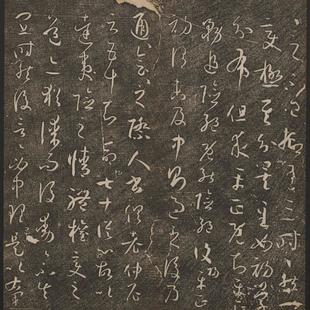 之不已抑有三時時然
一變極其分矣至如初學
分布但求平正既知平正
務追險絕既能險絕復歸平正
初謂未及中則過之後乃
通會通會之際人書俱老仲尼
云五十知命七十從心故以
達夷險之情體權變之
道亦猶謀而後動動不失
宜時然後言言必中理矣是以右軍